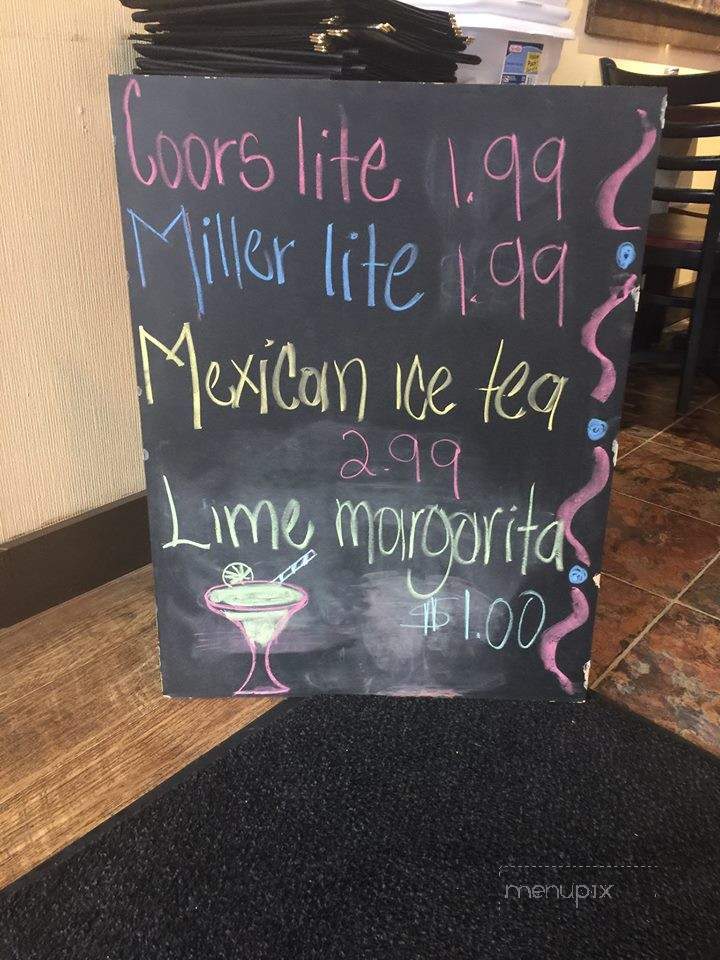 Coors lite 1.99
Miller lite 1.99
Mexican ice tea
2.99
Lime margarita
$1.00
menupix